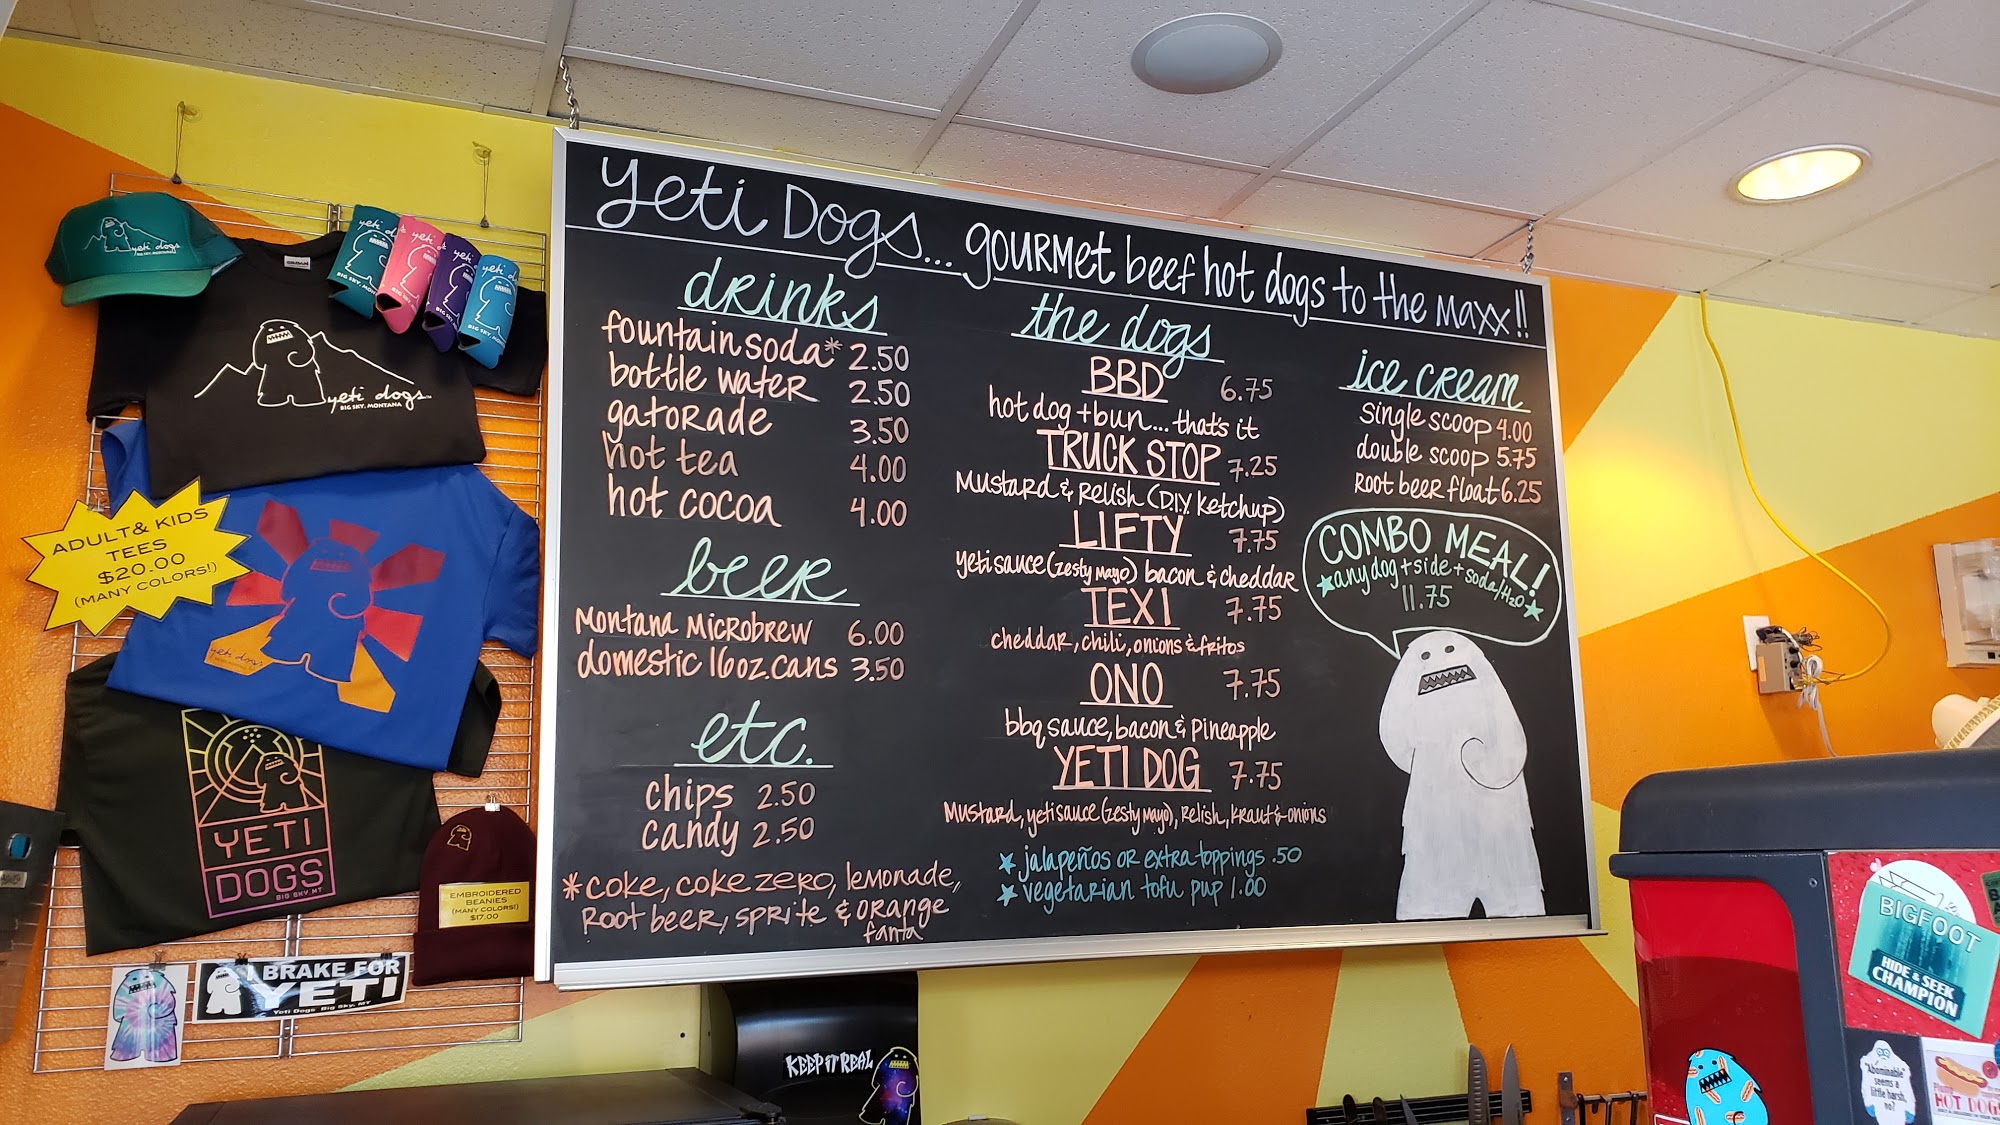 Yeti Dogs... gourmet beef hot dogs to the maxx!!
drinks
fountain soda* 2.50
bottle water 2.50
gatorade 3.50
hot tea 4.00
hot cocoa 4.00
beer
Montana Microbrew 6.00
domestic 16oz. cans 3.50
etc.
chips 2.50
candy 2.50
*coke, coke zero, lemonade,
root beer, sprite & orange
fanta
the dogs
BBD 6.75
hot dog + bun... that's it
TRUCK STOP 7.25
Mustard & Relish (D.I.Y. ketchup)
LIFTY 7.75
yeti sauce (zesty mayo) bacon & cheddar
TEXI 7.75
cheddar, chili, onions & fritos
ONO 7.75
bbq sauce, bacon & pineapple
YETI DOG 7.75
Mustard, yeti sauce (zesty mayo), relish, kraut & onions
★ jalapeños or extra toppings .50
★ vegetarian tofu pup 1.00
ice cream
single scoop 4.00
double scoop 5.75
root beer float 6.25
COMBO MEAL!
★ any dog + side + soda/H2O ★
11.75
yeti dogs
BIG SKY, MONTANA
yeti dogs
BIG SKY, MONTANA
ADULT & KIDS
TEES
$20.00
(MANY COLORS!)
yeti dogs
YETI
DOGS
BIG SKY, MT
EMBROIDERED
BEANIES
(MANY COLORS!)
$17.00
I BRAKE FOR
YETI
Yeti Dogs Big Sky, MT
KEEP IT REAL
BIGFOOT
HIDE & SEEK
CHAMPION
"Abominable"
seems a
little harsh,
no?
HOT DOG